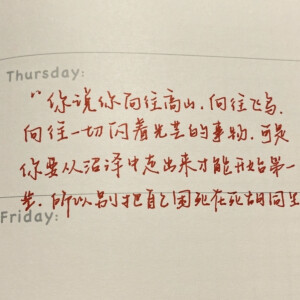 Thursday:
“你说你向往高山，向往飞鸟，
向往一切闪着光芒的事物，可是
你要从沼泽中走出来才能开始第一
步，所以别把自己困死在死胡同里
Friday: